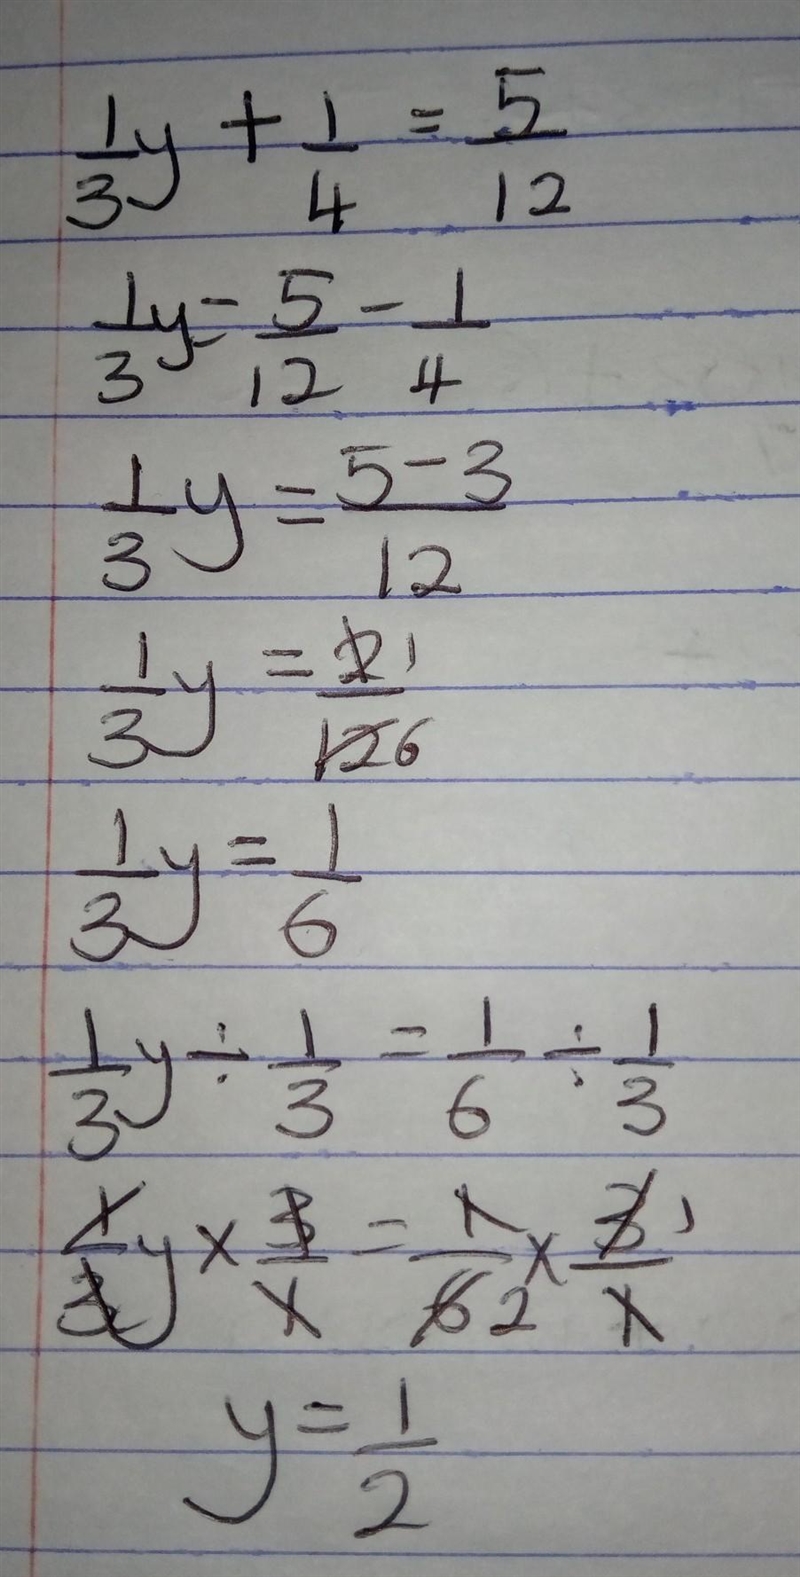 1/3 y + 1/4 = 5/12
1/3 y = 5/12 - 1/4
1/3 y = 5-3/12
1/3 y = 2 1/12 6
1/3 y = 1/6
1/3 y ÷ 1/3 = 1/6 ÷ 1/3
1/3 y × 3/1 = 1/6 2 × 3 1/1
y = 1/2